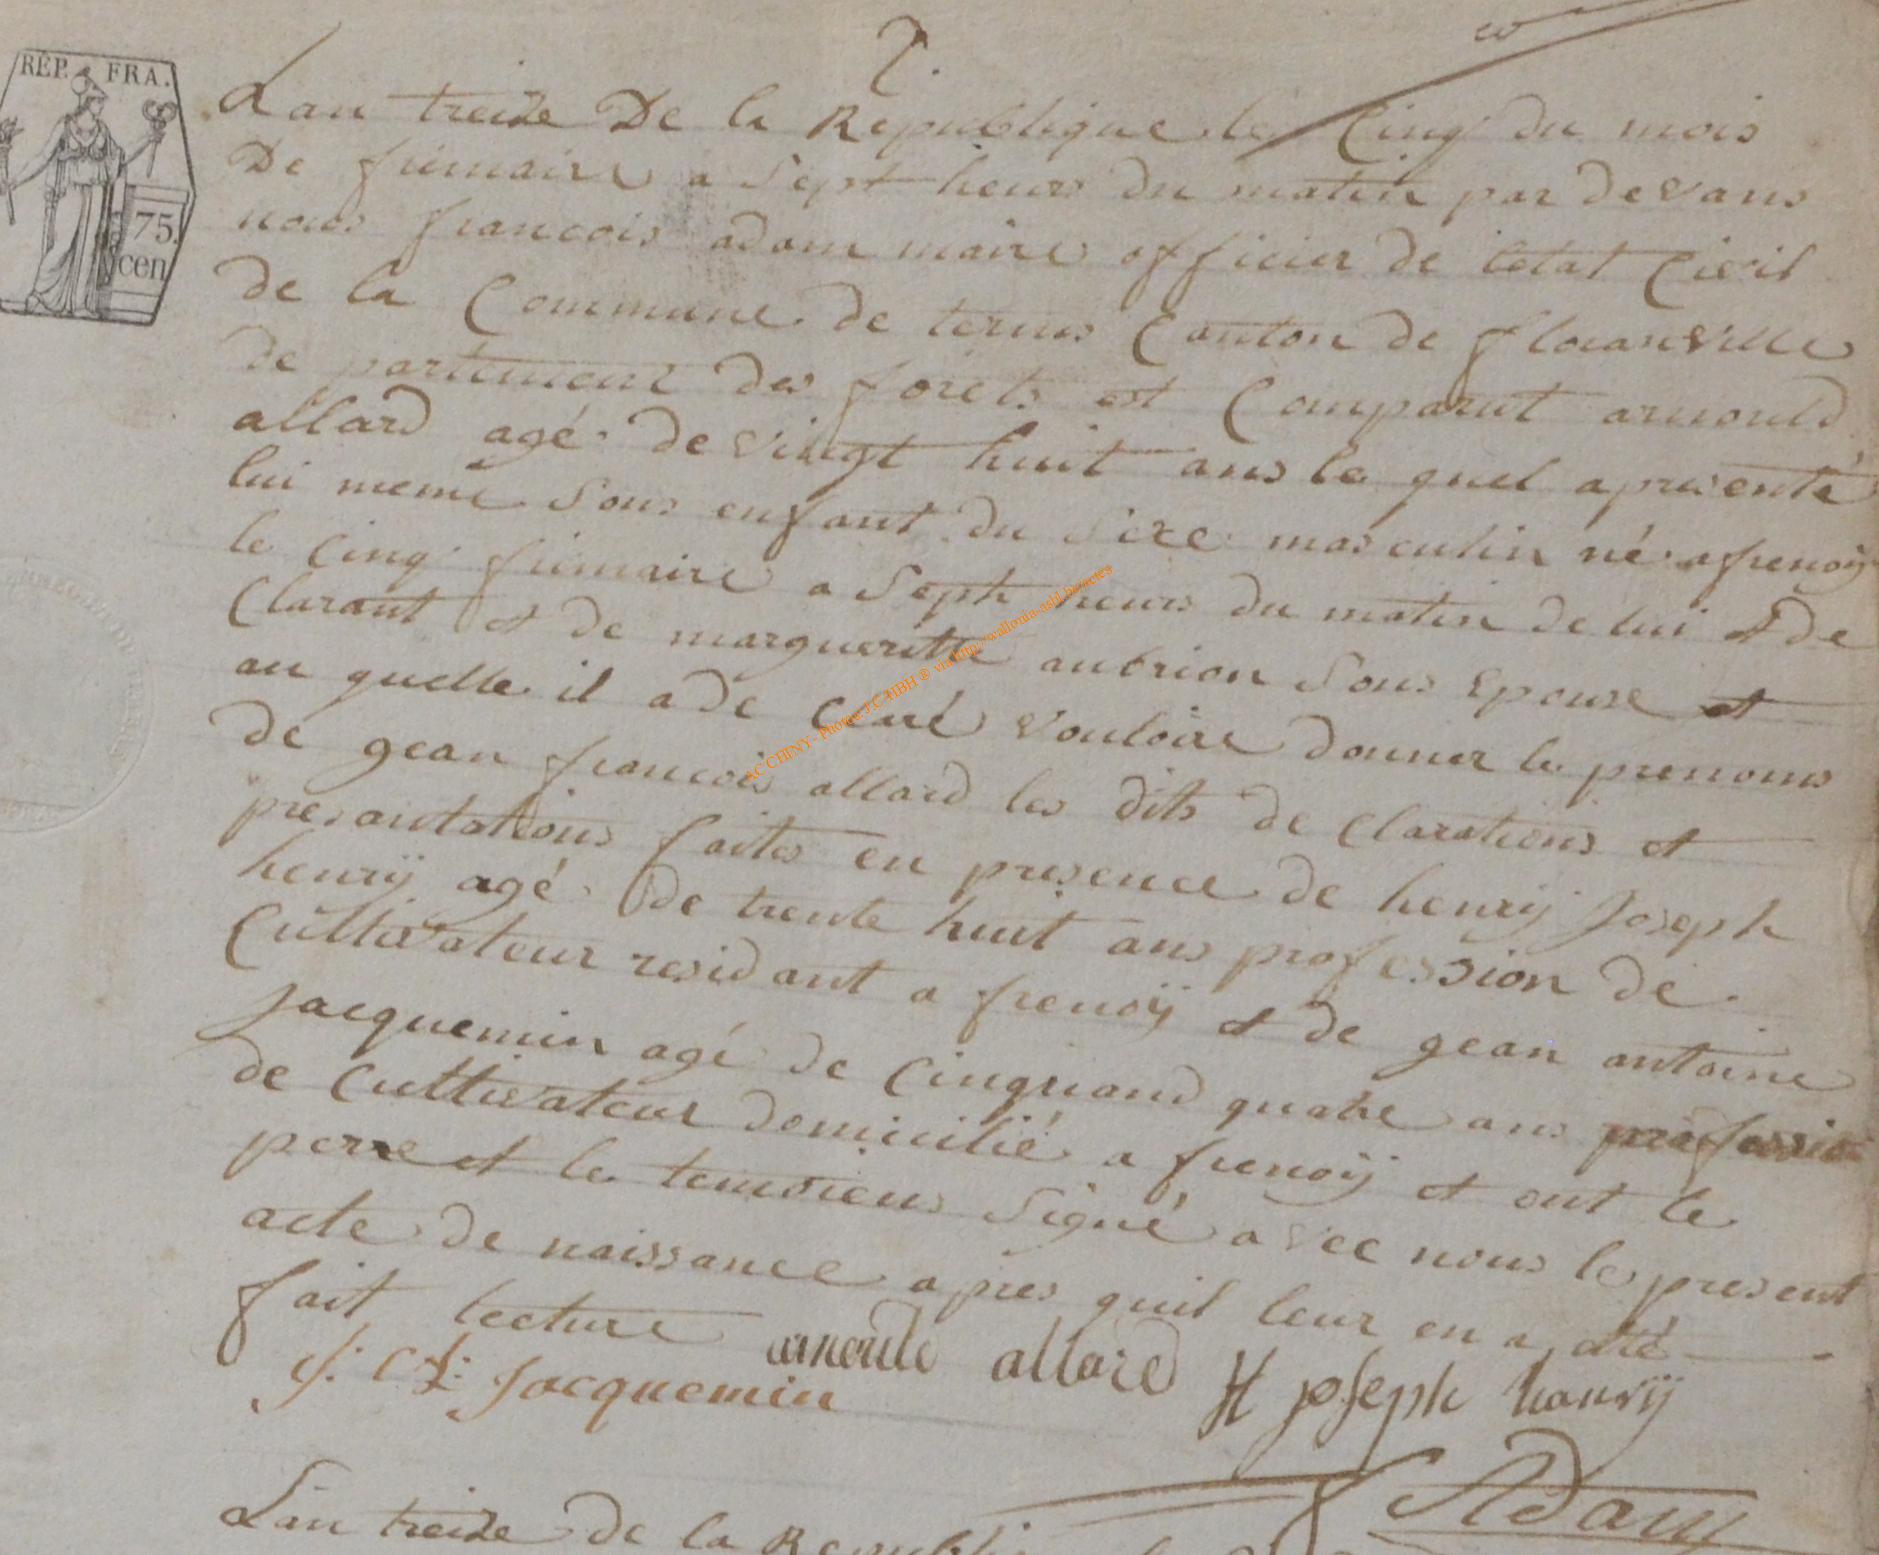 2.
RÉP. FRA.
75.
cen
Lan treize De la Republique le Cinq du mois
De frimaire a Sept heurs du matin par devans
nous francois adam maire officier de letat Civil
de la Commune de termes Canton de floranville
de partement des forets est Comparut arnould
allard agé de vingt huit ans le quel apresenté
lui meme Sons enfant du Sexe masculin né a frenoÿ
le cinq frimaire a Septh heurs du matin de lui et de
Clarant et de marguerithe aubrion Sons Epouse et
au quelle il a de Claré vouloire donner le prenoms
de gean francois allard les dits de clarations et
presantations faites en presence de henrÿ Joseph
henrÿ agé de trente huit ans profession de
Cultivateur residant a frenoÿ et de gean antoine
Jacquemin agé de Cinquand quatre ans profession
de Cultivateur domicilié a frenoÿ et ont le
perre et le temoiens Signé avec nous le present
acte de naissance apres quil leur en a été
fait lecture arnould allard H joseph hanrÿ
Jacquemin
Adam
Lan treize de la Republi
AC CHINY - Photos J.C HBH ® via http://wallonia-asbl.be/actes